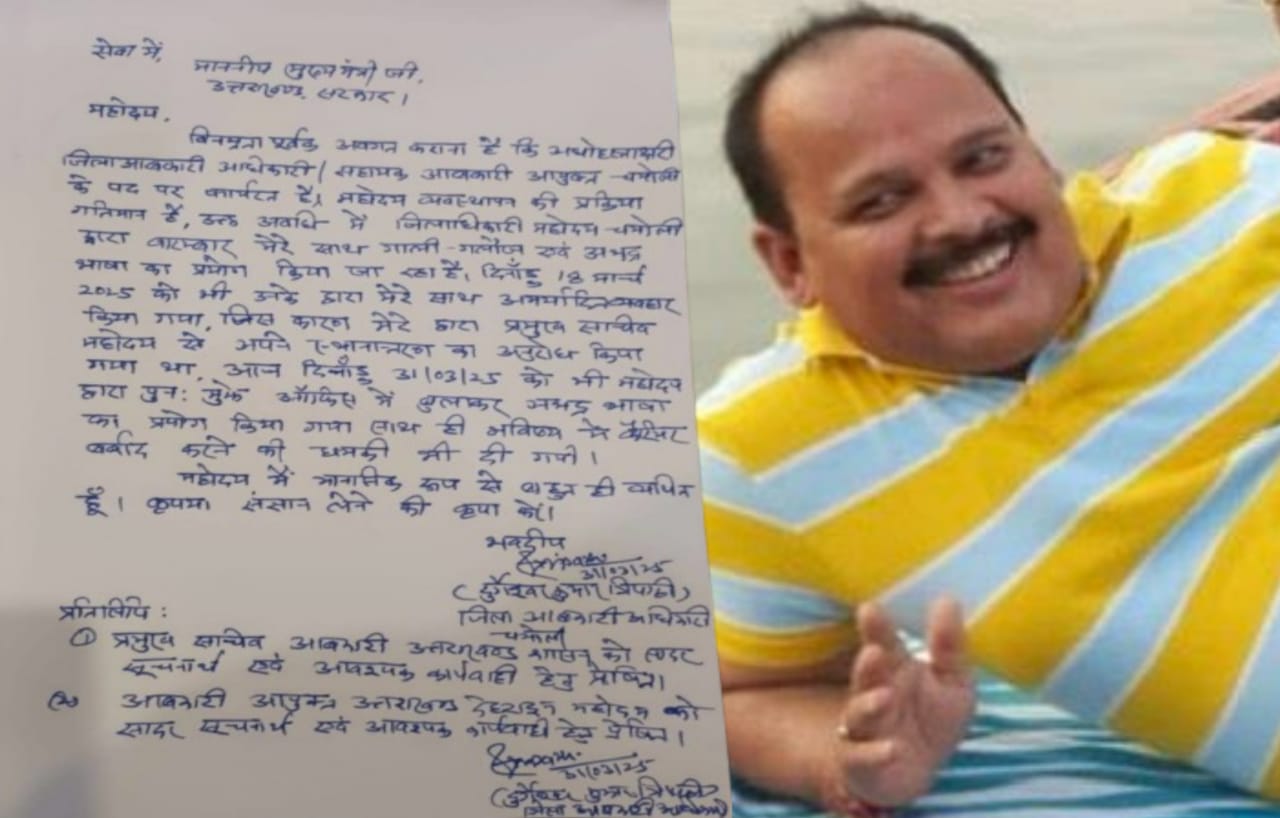 सेवा में,
माननीय मुख्यमंत्री जी,
उत्तराखण्ड सरकार।
महोदय,
विनम्रता पूर्वक अवगत कराना है कि मयोहस्ताक्षरी
जिला आबकारी अधिकारी/सहायक आबकारी आयुक्त चमोली
के पद पर कार्यरत है। महोदय व्यवस्थापन की प्रक्रिया
गतिमान है, उक्त अवधि में जिलाधिकारी महोदय चमोली
द्वारा बारम्बार मेरे साथ गाली-गलौज एवं अभद्र
भाषा का प्रयोग किया जा रहा है, दिनाँक 18 मार्च
2025 को भी उनके द्वारा मेरे साथ अमर्यादित व्यवहार
किया गया, जिस कारण मेरे द्वारा प्रमुख सचिव
महोदय से अपने स्थानान्तरण का अनुरोध किया
गया था, आज दिनाँक 31/03/25 को भी महोदय
द्वारा पुन: मुझे ऑफिस में बुलाकर अभद्र भाषा
का प्रयोग किया गया साथ ही भविष्य में कैरियर
बर्बाद करने की धमकी भी दी गयी।
महोदय मैं मानसिक रूप से बहुत ही व्यथित
हूँ। कृपया संज्ञान लेने की कृपा करें।
भवदीय
31/03/25
(दुर्गेश्वर कुमार त्रिपाठी)
जिला आबकारी अधिकारी
चमोली
प्रतिलिपि :
① प्रमुख सचिव आबकारी उत्तराखण्ड शासन को सादर
सूचनार्थ एवं आवश्यक कार्यवाही हेतु प्रेषित।
आबकारी आयुक्त उत्तराखण्ड देहरादून महोदय को
सादर सूचनार्थ एवं आवश्यक कार्यवाही हेतु प्रेषित।
31/03/25
(दुर्गेश्वर कुमार त्रिपाठी)
जिला आबकारी अधिकारी